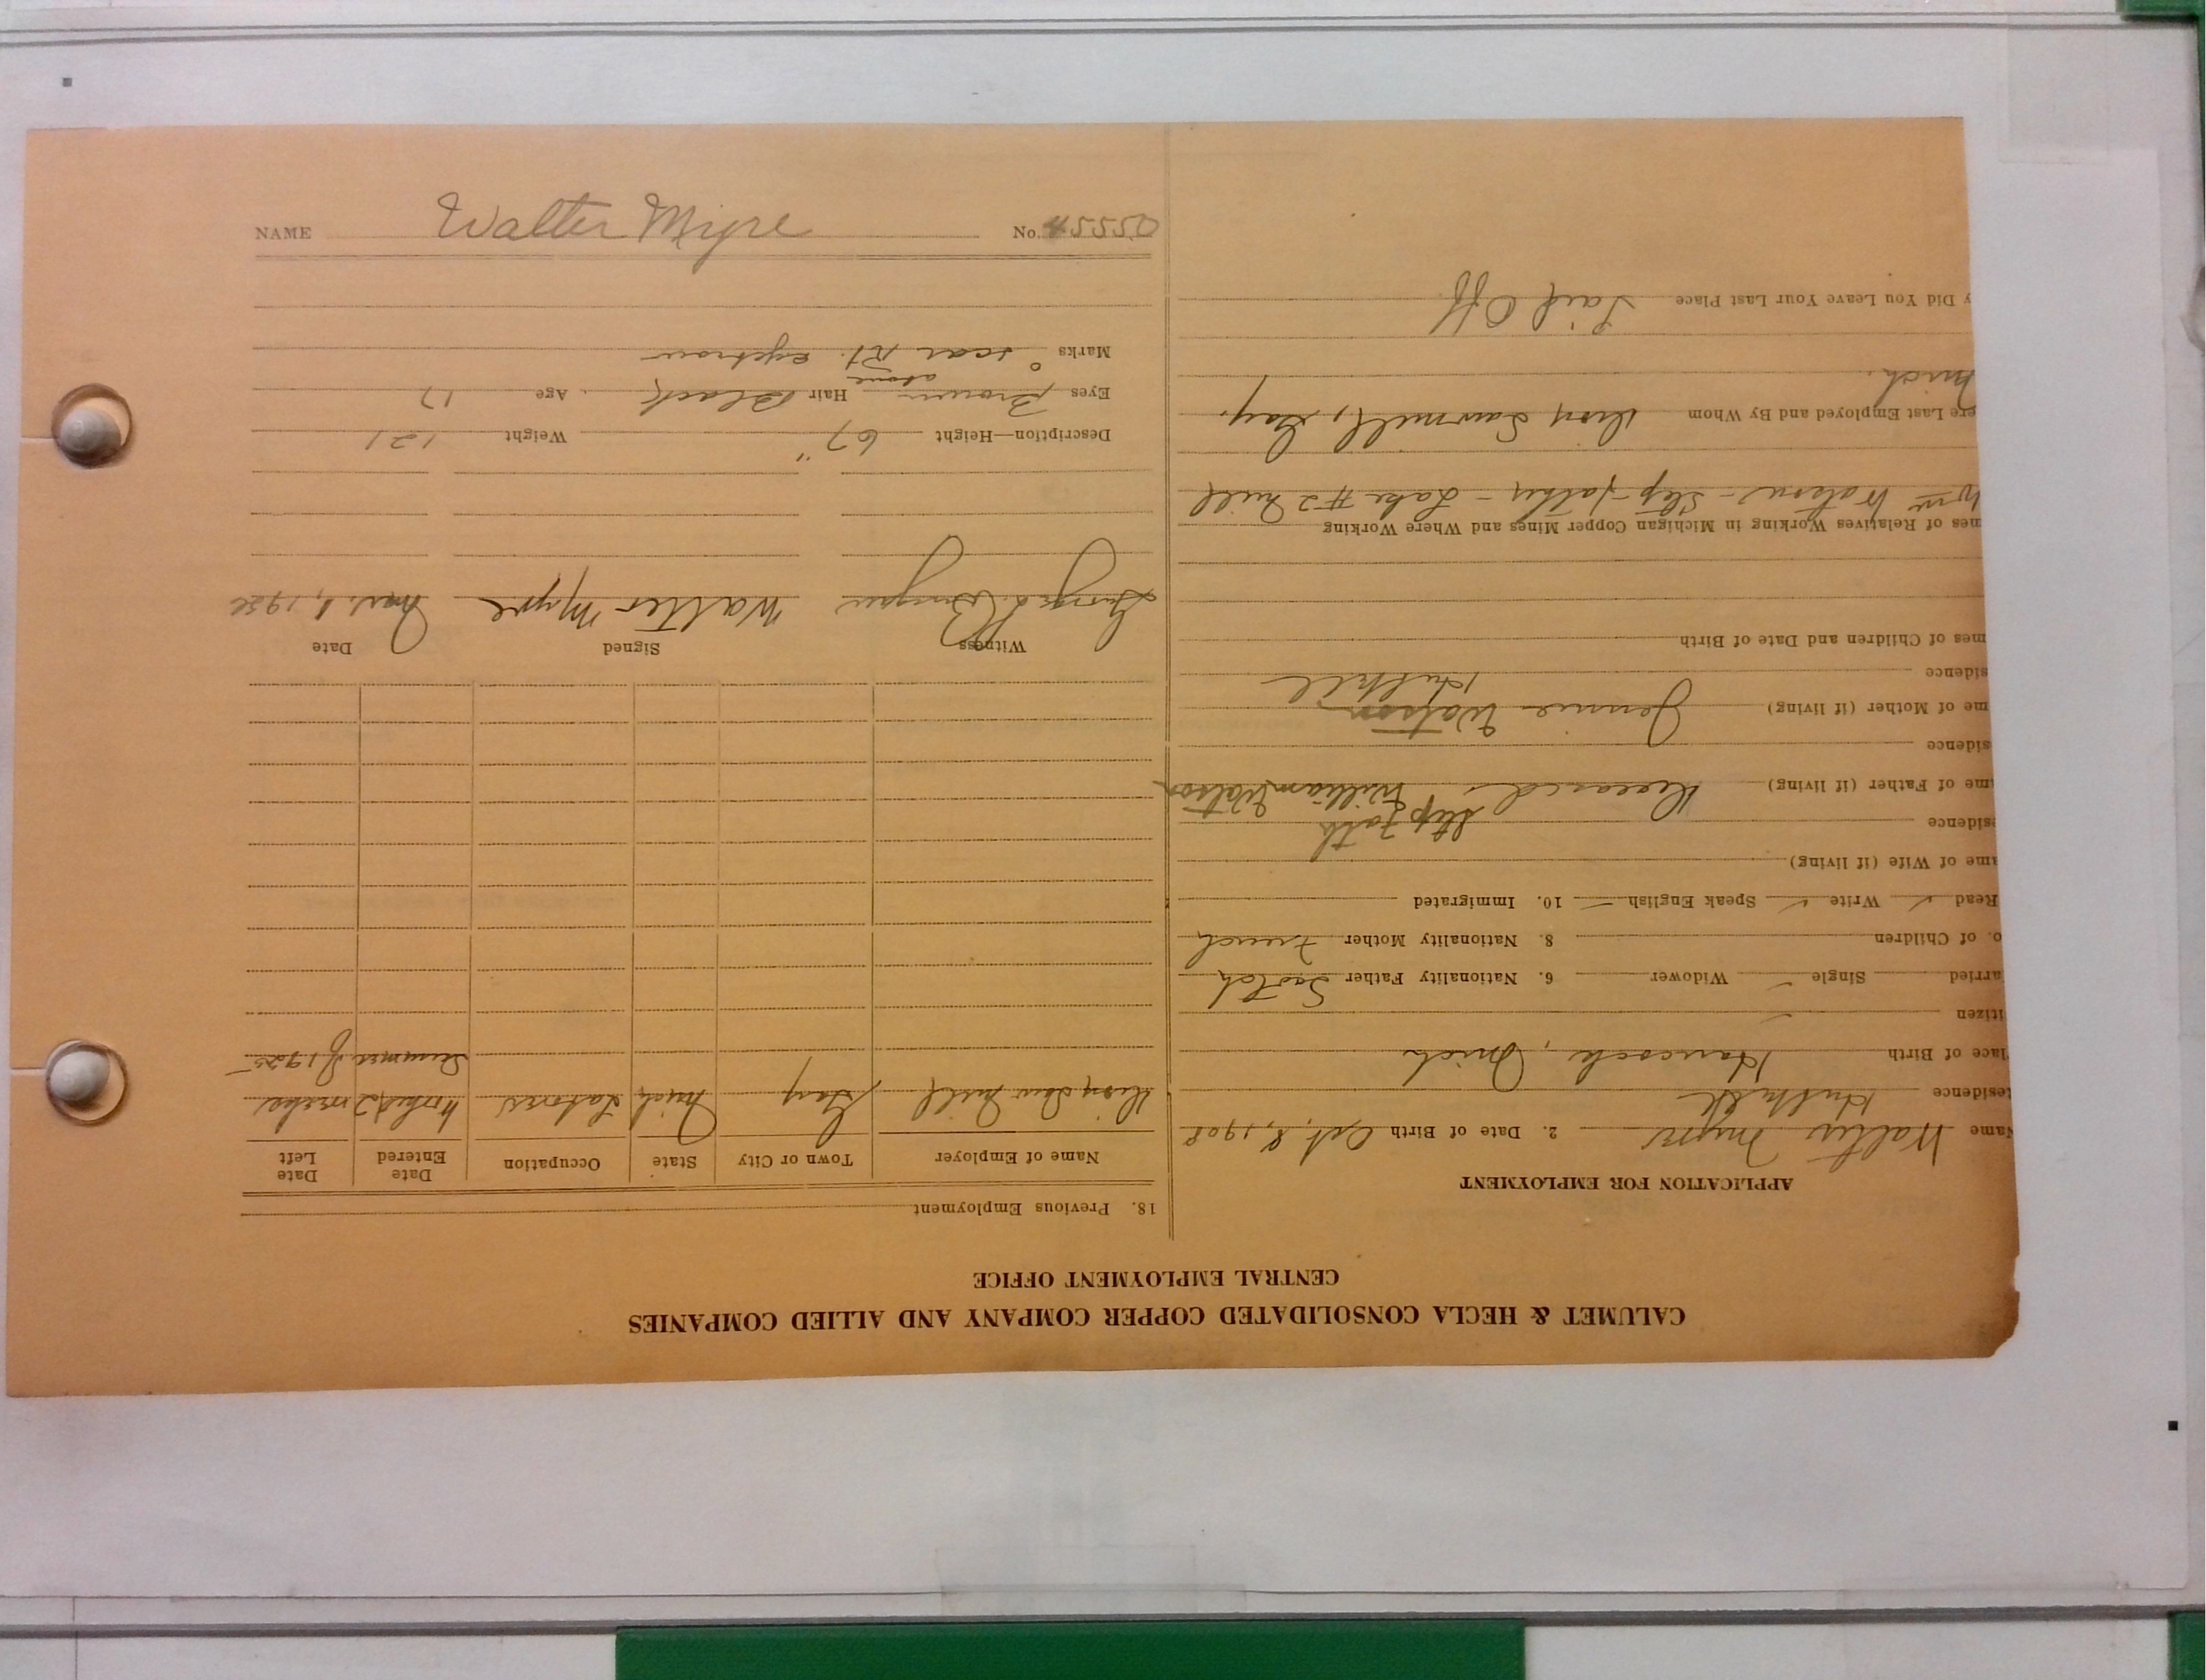 CALUMET & HECLA CONSOLIDATED COPPER COMPANY AND ALLIED COMPANIES
CENTRAL EMPLOYMENT OFFICE
APPLICATION FOR EMPLOYMENT
Name Walter Myre 2. Date of Birth Oct. 8, 1908
esidence Hubbell
lace of Birth Hancock, Mich
itizen ✓
arried Single ✓ Widower 6. Nationality Father Scotch
o. of Children 8. Nationality Mother French
Read ✓ Write ✓ Speak English ✓ 10. Immigrated
ame of Wife (if living)
sidence Step Fath
me of Father (if living) Deceased William Watson
sidence
me of Mother (if living) Jennie Watson
sidence Hubbell
mes of Children and Date of Birth
mes of Relatives Working in Michigan Copper Mines and Where Working
Wm Watson - Step-father - Lake #2 Mill
ere Last Employed and By Whom Sawmill, Gay,
Mich.
y Did You Leave Your Last Place Laid Off
18. Previous Employment
Name of Employer Town or City State Occupation Date Entered Date Left
Saw Mill Gay Mich Laborer Worked 2 weeks
Summer of 1925
Witness Signed Date
George L. Walter Myre Mar. 1, 1926
Description—Height 67" Weight 121
Eyes Brown Hair Black Age 17
above
Marks scar Rt. eyebrow
NAME Walter Myre No. 45550